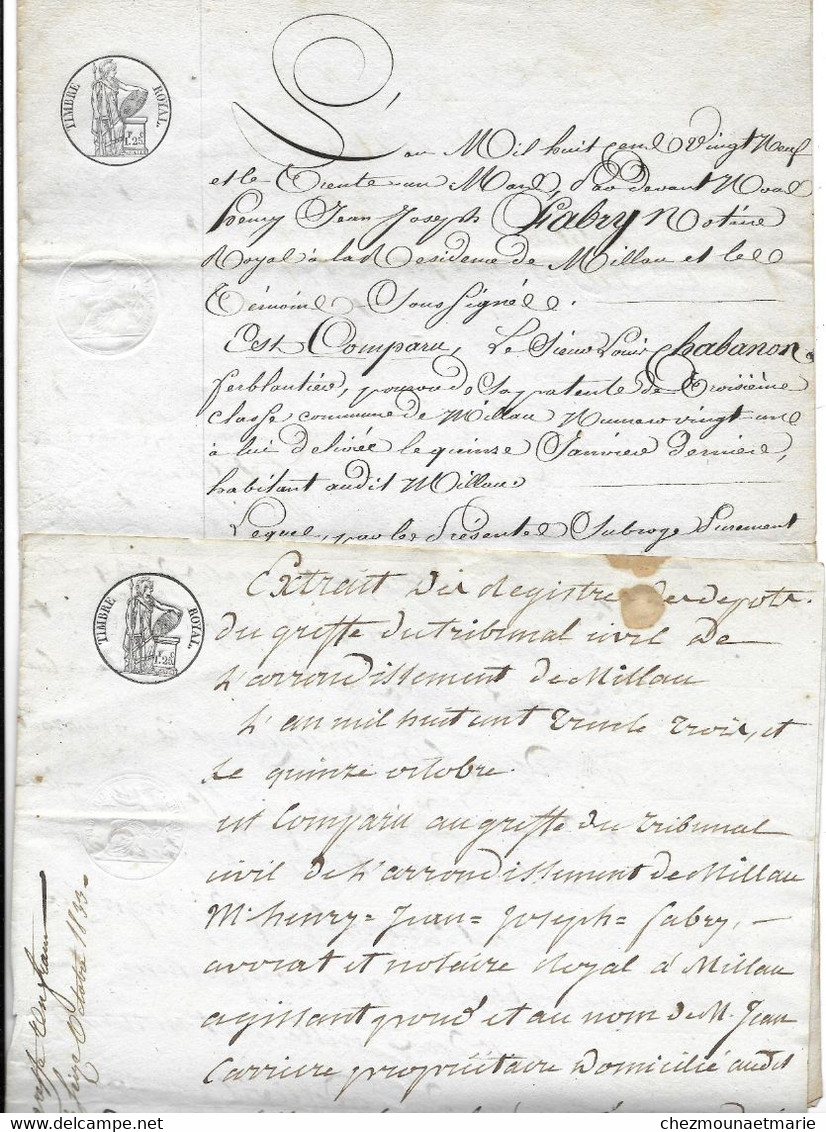 TIMBRE ROYAL.
1.25
L'an Mil huit cent Vingt Neuf
et le Trente un Mars, par devant Nous
henry Jean Joseph Fabry Notaire
Royal à la Residence de Millau et les
Témoins Soussignés.
Est Comparu, Le Sieur Louis Chabanon
ferblantier, pourvu de sa patente de Troisième
classe commune de Millau Numero vingt un
à lui delivrée le quinze Janvier dernier,
habitant audit Millau.
Lequel, par les présentes Subroge purement
TIMBRE ROYAL.
1.25
Extrait des Registres des depots
du greffe du tribunal civil de
l'arrondissement de Millau
L'an mil huit cent trente trois, et
le quinze octobre.
est Comparu au greffe du tribunal
civil de l'arrondissement de Millau
Mr henry = Jean = Joseph = fabry, —
avocat et notaire Royal à Millau
agissant pour et au nom de M. Jean
Carriere propriétaire domicilié audit
octobre 1833.
chezmounaetmarie